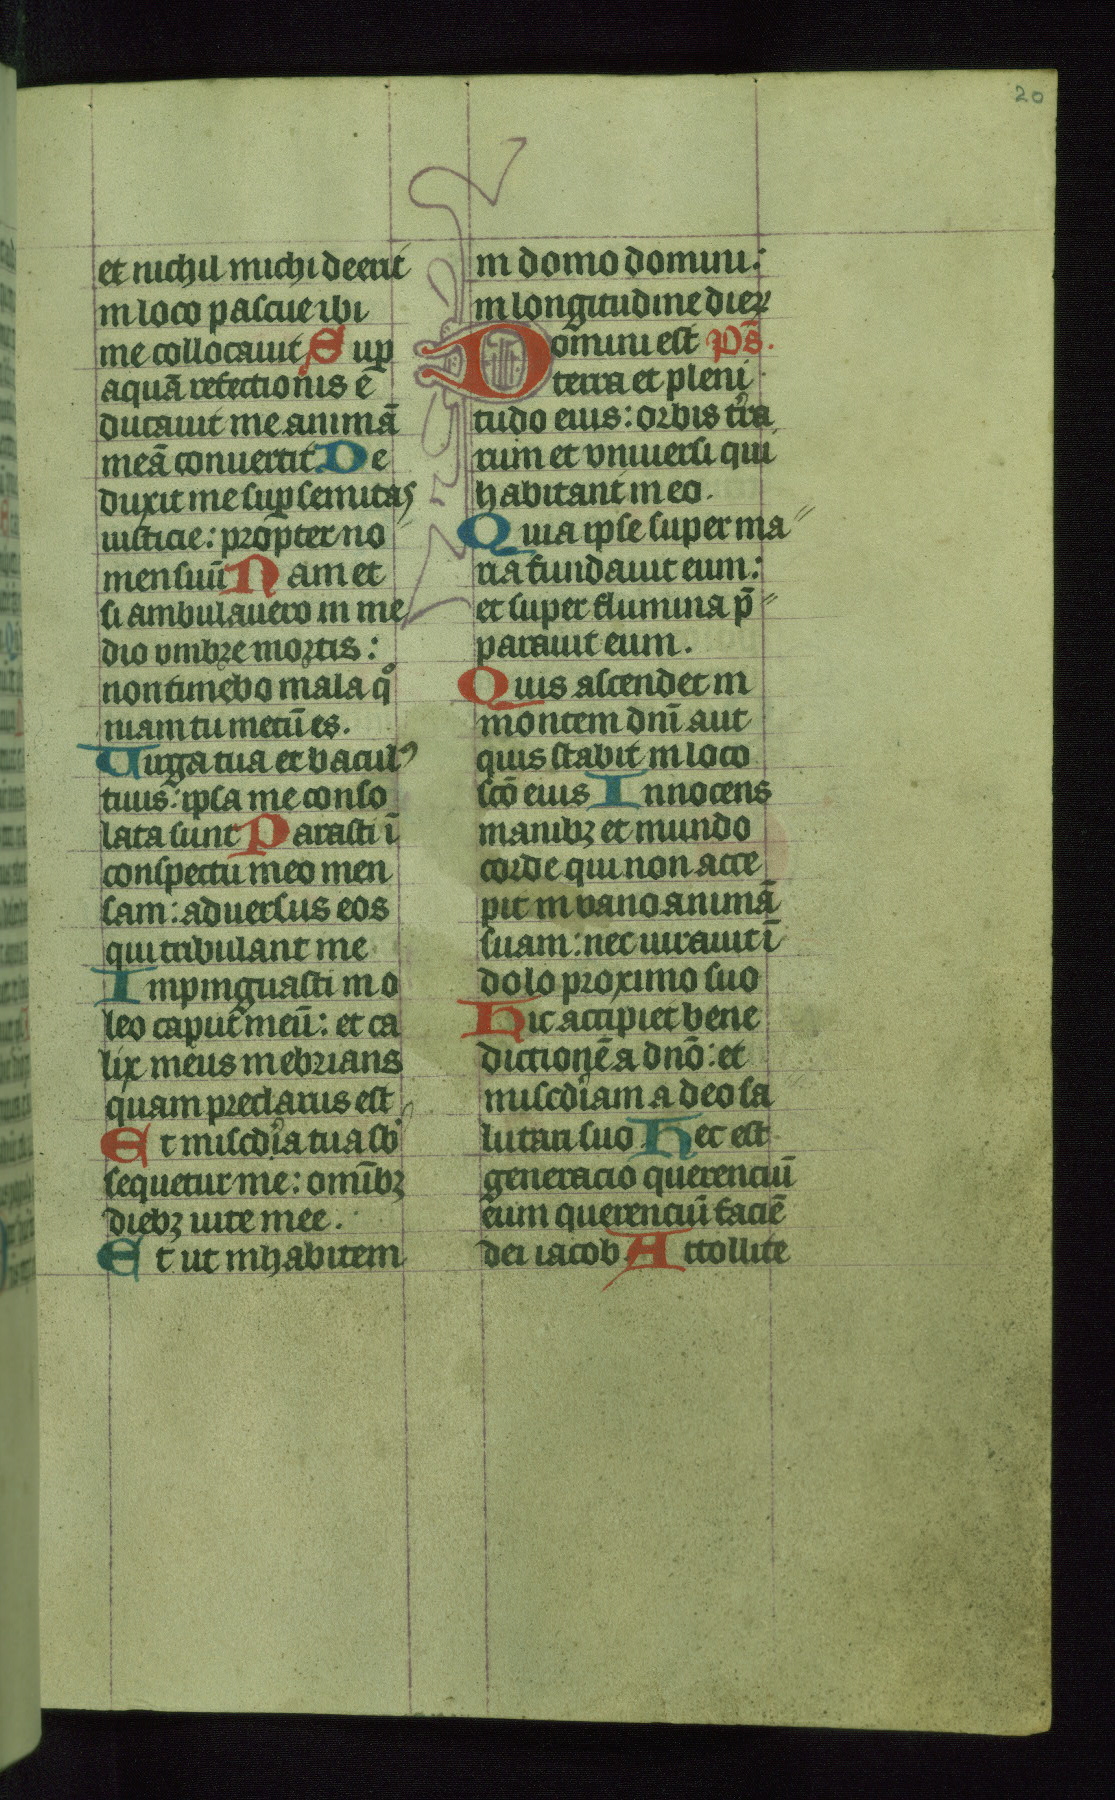 20
et nichil michi deerit
in loco pascue ibi
me collocauit Sup
aquā refectionis e
ducauit me animā
meā conuertit De
duxit me sup semitas
iusticie: propter no
men suū Nam et
si ambulauero in me
dio vmbre mortis:
non timebo mala qͦ
niam tu mecū es.
Uirga tua et baculꝰ
tuus: ipsa me conso
lata sunt Parasti ī
conspectu meo men
sam: aduersus eos
qui tribulant me
Impinguasti in o
leo caput meū: et ca
lix meus inebrians
quam preclarus est
Et miscdīa tua sb
sequetur me: omībꝫ
diebꝫ uite mee.
Et ut inhabitem
in domo domini:
in longitudine dieꝝ
Domini est pš.
terra et pleni
tudo eius: orbis tr̄a
rum et vniuersi qui
habitant in eo.
Quia ipse super ma
ria fundauit eum:
et super flumina p̄
parauit eum.
Quis ascendet in
montem dnī aut
quis stabit in loco
scō eius Innocens
manibꝫ et mundo
corde qui non acce
pit in vano animā
suam: nec iurauit ī
dolo proximo suo
Hic accipiet bene
dictionē a dnō: et
miscdīam a deo sa
lutari suo Hec est
generacio querenciū
eum querenciū faciē
dei iacob Attollite